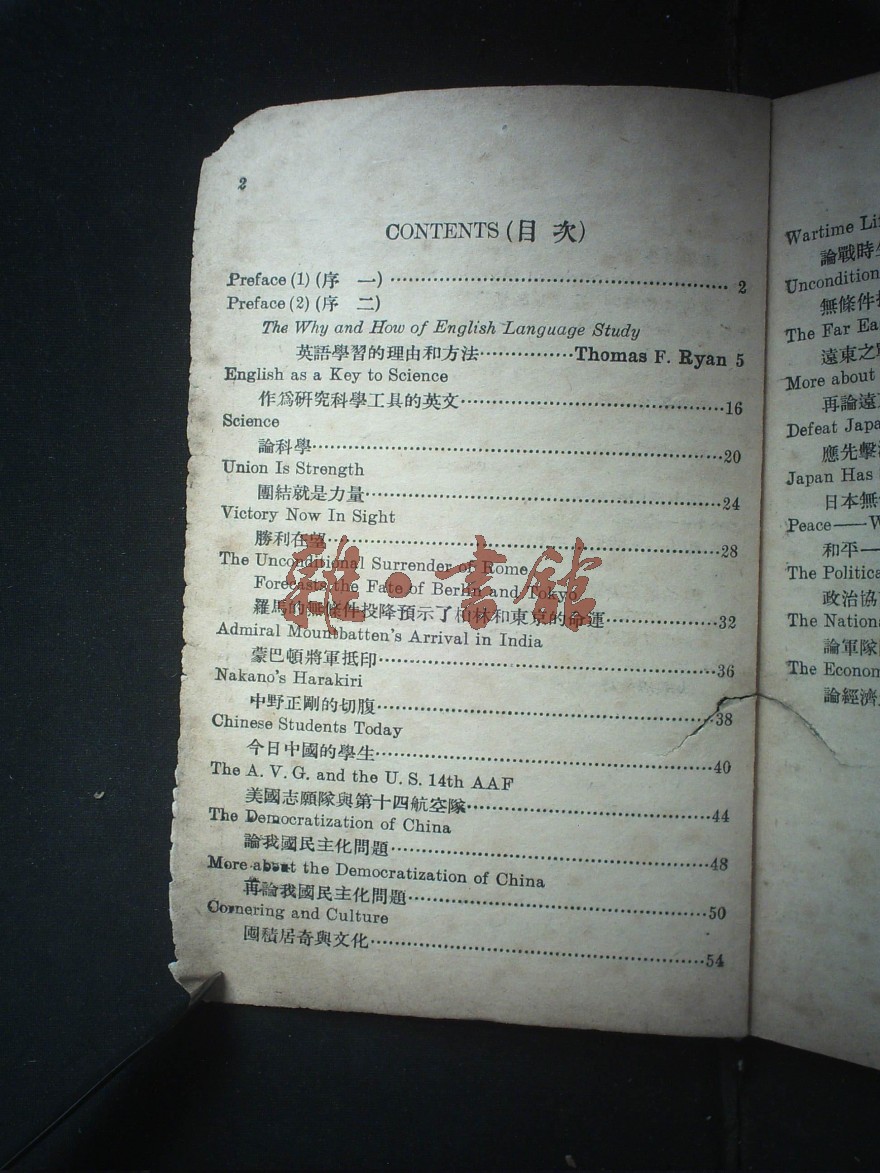 2
CONTENTS (目 次)
Preface (1) (序 一) 2
Preface (2) (序 二)
The Why and How of English Language Study
英語學習的理由和方法 Thomas F. Ryan 5
English as a Key to Science
作爲硏究科學工具的英文 16
Science
論科學 20
Union Is Strength
團結就是力量 24
Victory Now In Sight
勝利在望 28
The Unconditional Surrender of Rome
Forecasts the Fate of Berlin and Tokyo
羅馬的無條件投降預示了柏林和東京的命運 32
Admiral Mountbatten's Arrival in India
蒙巴頓將軍抵印 36
Nakano's Harakiri
中野正剛的切腹 38
Chinese Students Today
今日中國的學生 40
The A. V. G. and the U. S. 14th AAF
美國志願隊與第十四航空隊 44
The Democratization of China
論我國民主化問題 48
More about the Democratization of China
再論我國民主化問題 50
Cornering and Culture
囤積居奇與文化 54
雜·書館
Wartime
論戰時
無條件
The Far
遠東之
More about
再論遠
Defeat
應先擊
Japan Has
日本無
Peace——
和平—
The
政治協
The
論軍隊
The
論經濟